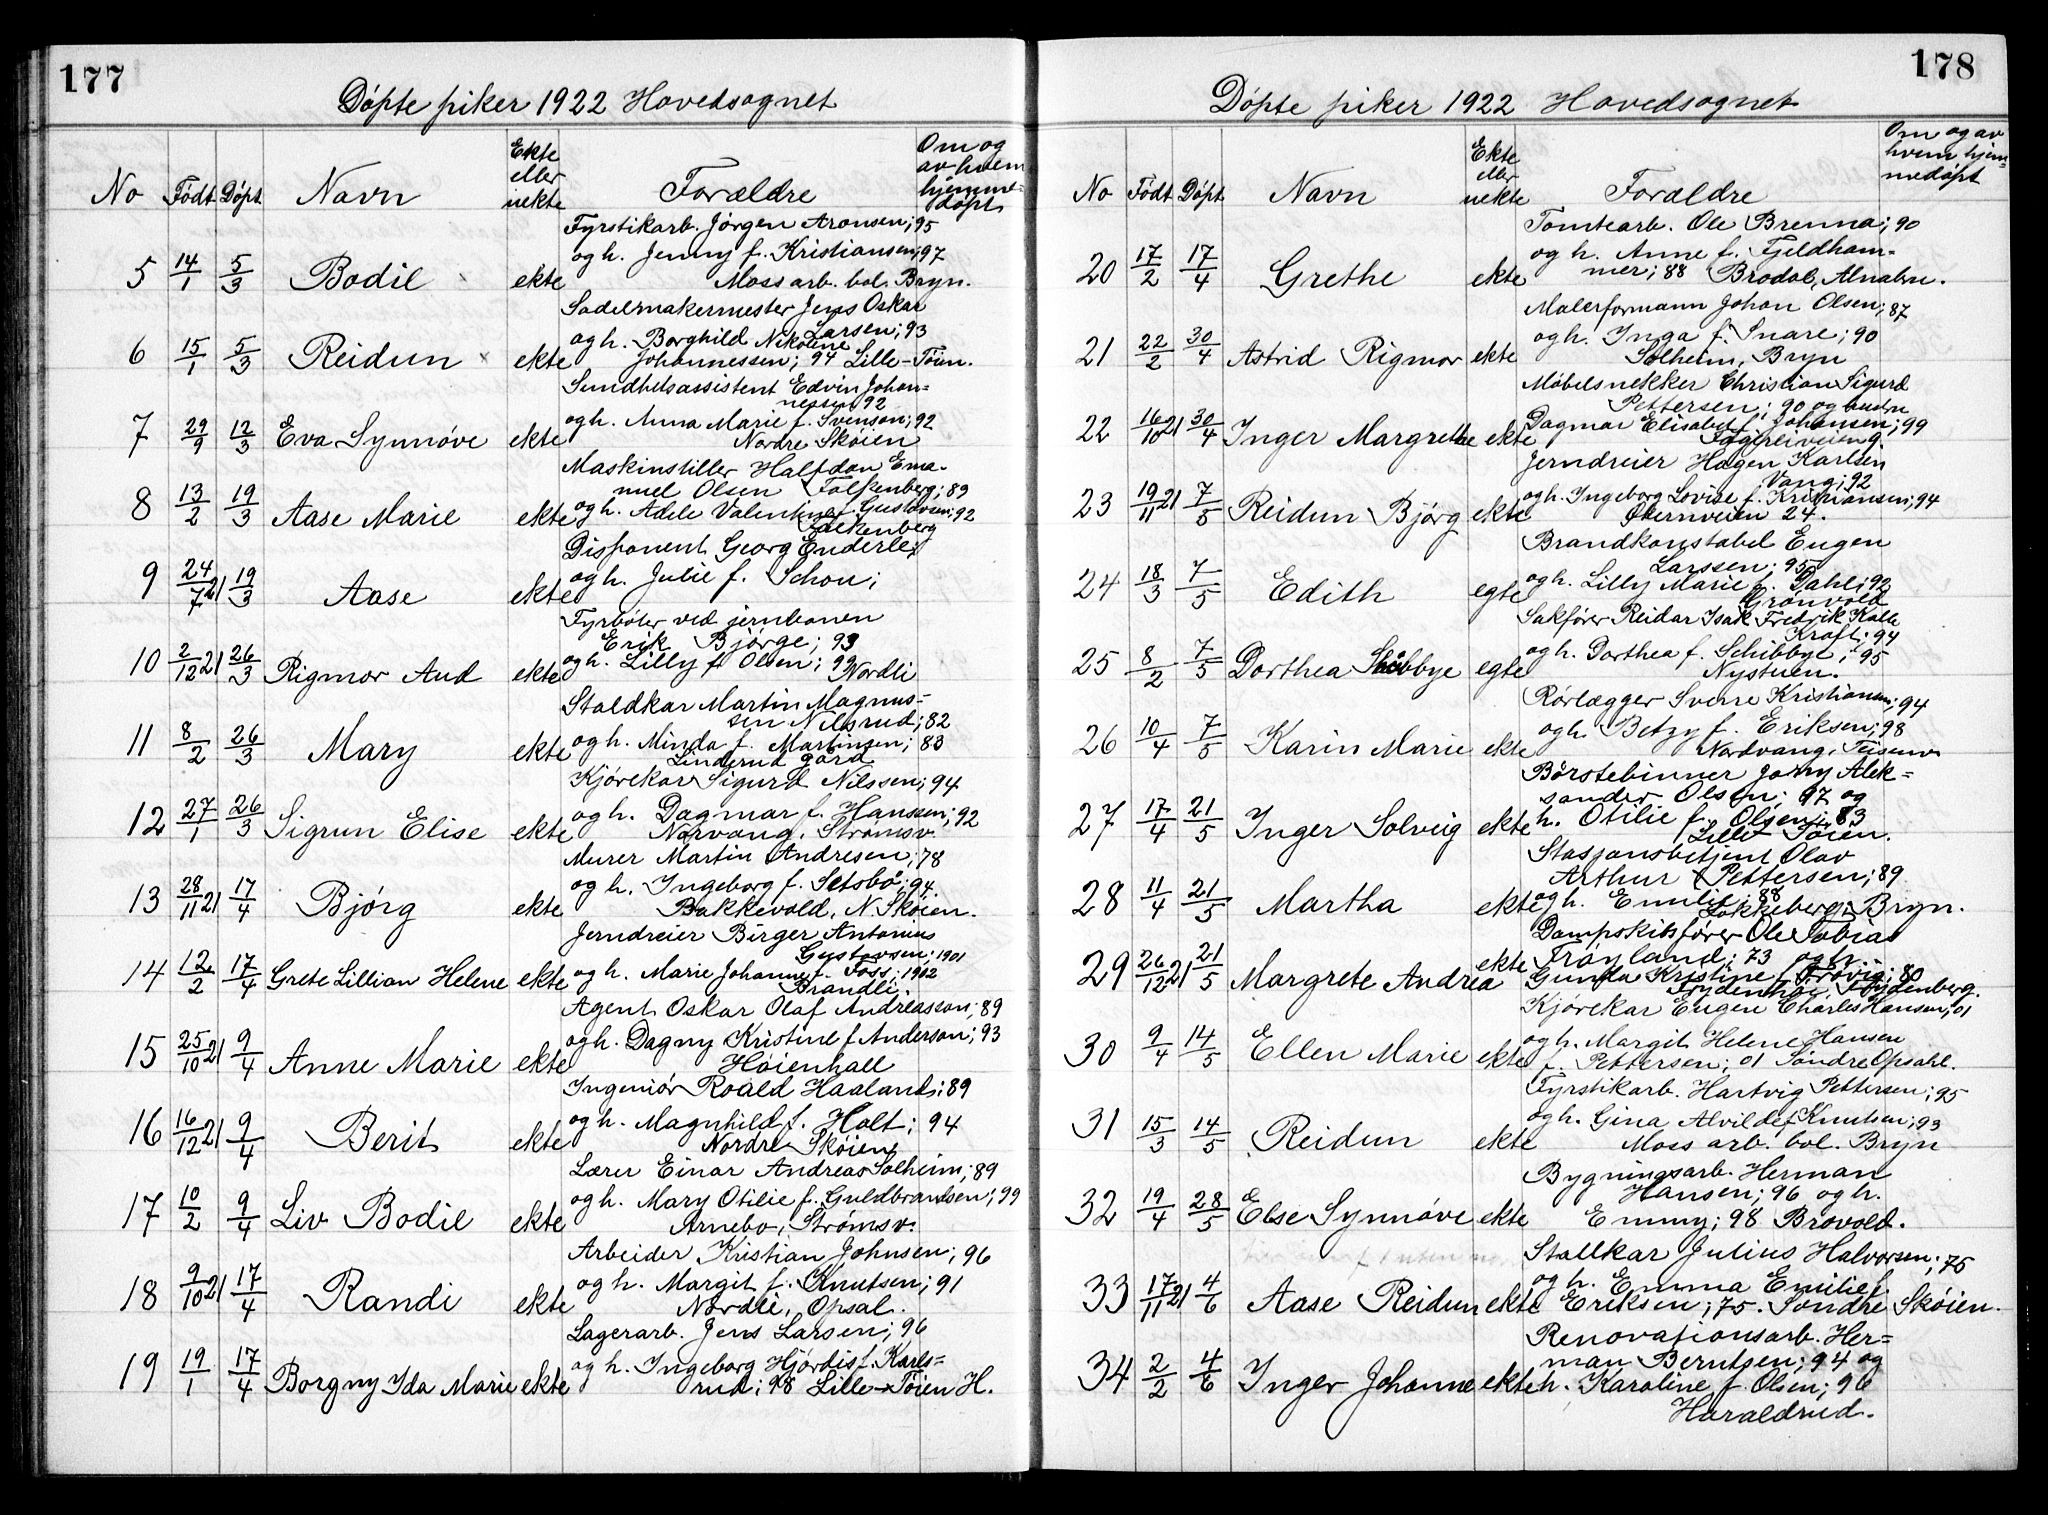 177
Døpte piker 1922 Hovedsognet
No Født Døpt Navn Ekte eller uekte Forældre Om og av hvem hjemme-døpt
Fyrstikarb. Jørgen Aronsen; 95
5 14/1 5/3 Bodil ekte og h. Jenny f. Kristiansen; 97
Moss arb. bol. Bryn.
Sadelmakermester Jens Oskar
Larsen; 93
6 15/1 5/3 Reidun ekte og h. Borghild Nikoline
Johannessen; 94 Lille-Töien.
Sundhetsassistent Edvin Johan-
nessen 92
7 29/9 12/3 Eva Synnøve ekte og h. Anna Marie f. Svenson; 92
Nordre Skøien
Maskinstiller Halfdan Ema-
nuel Olsen Falkenberg; 89
8 13/2 19/3 Aase Marie ekte og h. Adele Valentine f. Gustavsen; 92
Falkenberg
Disponent Georg Enderle
9 24/7 21 19/3 Aase ekte og h. Julie f. Schou;
Fyrbøter ved jernbanen
Erik Bjørge; 93
10 2/12 21 26/3 Rigmor Aud ekte og h. Lilly f. Olsen; 99
Nordli
Staldkar Martin Magnus-
sen Nilsrud; 82
11 8/2 26/3 Mary ekte og h. Minda f. Martinsen; 83
Linderud gård
Kjørekar Sigurd Nilssen; 94
12 27/1 26/3 Sigrun Elise ekte og h. Dagmar f. Hanssen; 92
Norvang, Strømsv.
Murer Martin Andresen; 78
13 28/11 21 17/4 Bjørg ekte og h. Ingeborg f. Setsbö; 94.
Bakkevold, N. Skøien.
Jerndreier Birger Antonius
Gustavsen; 1901
14 12/2 17/4 Grete Lillian Helene ekte og h. Marie Johanne f. Foss; 1902
Brandli.
Agent Oskar Olaf Andreasson; 89
15 25/10 21 9/4 Anne Marie ekte og h. Dagny Kristine f. Anderson; 93
Høienhall
Ingeniör Roald Haaland; 89
16 16/12 21 9/4 Berit ekte og h. Magnhild f. Holt; 94
Nordre Skøien
Lærer Einar Andreas Solheim; 89
17 10/2 9/4 Liv Bodil ekte og h. Mary Otilie f. Guldbrandsen; 99
Arnebo, Strømsv.
Arbeider Kristian Johnsen; 96
18 9/10 21 17/4 Randi ekte og h. Margit f. Knutsen; 91
Nordli, Opsal.
Lagerarb. Jens Larsen; 96
19 19/1 17/4 Borgny Ida Marie ekte og h. Ingeborg Hjördis f. Karls-
rud; 98 Lille-Töien H.
178
Døpte piker 1922 Hovedsognet
No Født Døpt Navn Ekte eller uekte Forældre Om og av hvem hjem-medøpt
Tomtearb. Ole Brenna; 90
20 17/2 17/4 Grethe ekte og h. Anne f. Fjeldham-
mer; 88 Brodal, Alnabru.
Malerformann Johan Olsen; 87
21 22/2 30/4 Astrid Rigmor ekte og h. Inga f. Snare; 90
Solheim, Bryn
Møbelsnekker Christian Sigurd
Pettersen; 90 og hustru
22 16/10 21 30/4 Inger Margrethe ekte Dagmar Elisabet f. Johansen; 99
Jerndreier Hagen Karlsen
Vang; 92
23 19/11 21 7/5 Reidun Bjørg ekte og h. Ingeborg Lovise f. Kristiansen; 94
Obernveien 24.
Brandkonstabel Eugen
Larssen; 95
24 18/3 7/5 Edith egte og h. Lilly Marie f. Dahl; 92
Grønvold
Sakfører Reidar Isak Fredrik Kolle
Kraft; 94
25 8/2 7/5 Dorthea Schibbye egte og h. Dorthea f. Schibbye; 95
Nystuen.
Rørlægger Sverre Kristiansen; 94
26 10/4 7/5 Karin Marie ekte og h. Betzy f. Eriksen; 98
Nordvang, Teisenv.
Børstebinner Jonny Alek-
sander Olsen; 97 og
27 17/4 21/5 Inger Solveig ekte h. Otilie f. Olsen; 83
Lille Töien.
Stasjonsbetjent Olav
Arthur Pettersen; 89
28 11/4 21/5 Martha ekte og h. Emilie; 88
Løkkeberg, Bryn.
Dampskibsfører Ole Tobias
29 26/12 21 21/5 Margrete Andrea ekte Frøyland; 73 og h.
Gunda Kristine f. Frøvig; 80
Frydenhøi, Frydenberg.
Kjørekar Eugen Charles Hansen; 01
30 9/4 14/5 Ellen Marie ekte og h. Margit Helene Hansen
f. Pettersen; 01 Søndre Opsahl.
Fyrstikarb. Hartvig Pettersen; 95
31 15/3 14/5 Reidun ekte og h. Gina Alvilde f. Knutsen; 93
Moss arb. bol. Bryn
Bygningsarb. Herman
Hansen; 96 og h.
32 19/4 28/5 Else Synnøve ekte Emmy; 98 Brovold.
Stallkar Julius Halvorsen; 75
og h. Emma Emilie f.
33 17/11 21 4/6 Aase Reidun ekte Eriksen; 75. Søndre Skøien.
Renovationsarb. Her-
man Berntsen; 94 og
34 2/2 4/6 Inger Johanne ekte h. Karoline f. Olsen; 96
Haraldrud.